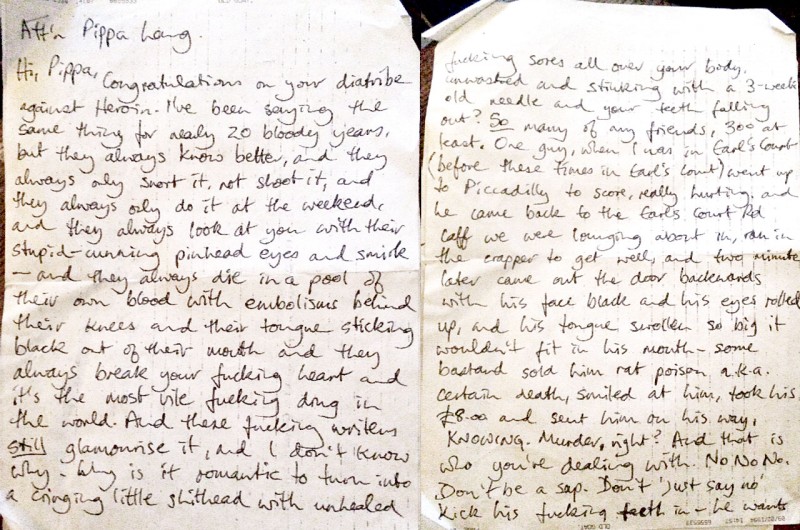 Att'n Pippa Lang.
Hi, Pippa,
Congratulations on your diatribe
against Heroin. I've been saying the
same thing for nearly 20 bloody years,
but they always know better, and they
always only snort it, not shoot it, and
they always only do it at the weekend,
and they always look at you with their
stupid-cunning pinhead eyes and smirk
- and they always die in a pool of
their own blood with embolisms behind
their knees and their tongue sticking
black out of their mouth and they
always break your fucking heart and
it's the most vile fucking drug in
the world. And these fucking writers
still glamourise it, and I don't know
why. Why is it romantic to turn into
a cringing little shithead with unhealed
fucking sores all over your body,
unwashed and stinking with a 3-week
old needle and your teeth falling
out? So many of my friends, 300 at
least. One guy, when I was in Earl's Court
(before these times in Earl's Court) went up
to Piccadilly to score, really hurting, and
he came back to the Earls Court Rd
caff we were lounging about in, ran in
the crapper to get well, and two minute
later came out the door backwards
with his face black and his eyes rolled
up, and his tongue swollen so big it
wouldn't fit in his mouth - some
bastard sold him rat poison a.k.a.
certain death, smiled at him, took his
£8.00 and sent him on his way,
KNOWING. Murder, right? And that is
who you're dealing with. No No No.
Don't be a sap. Don't 'just say no'
Kick his fucking teeth in - he wants